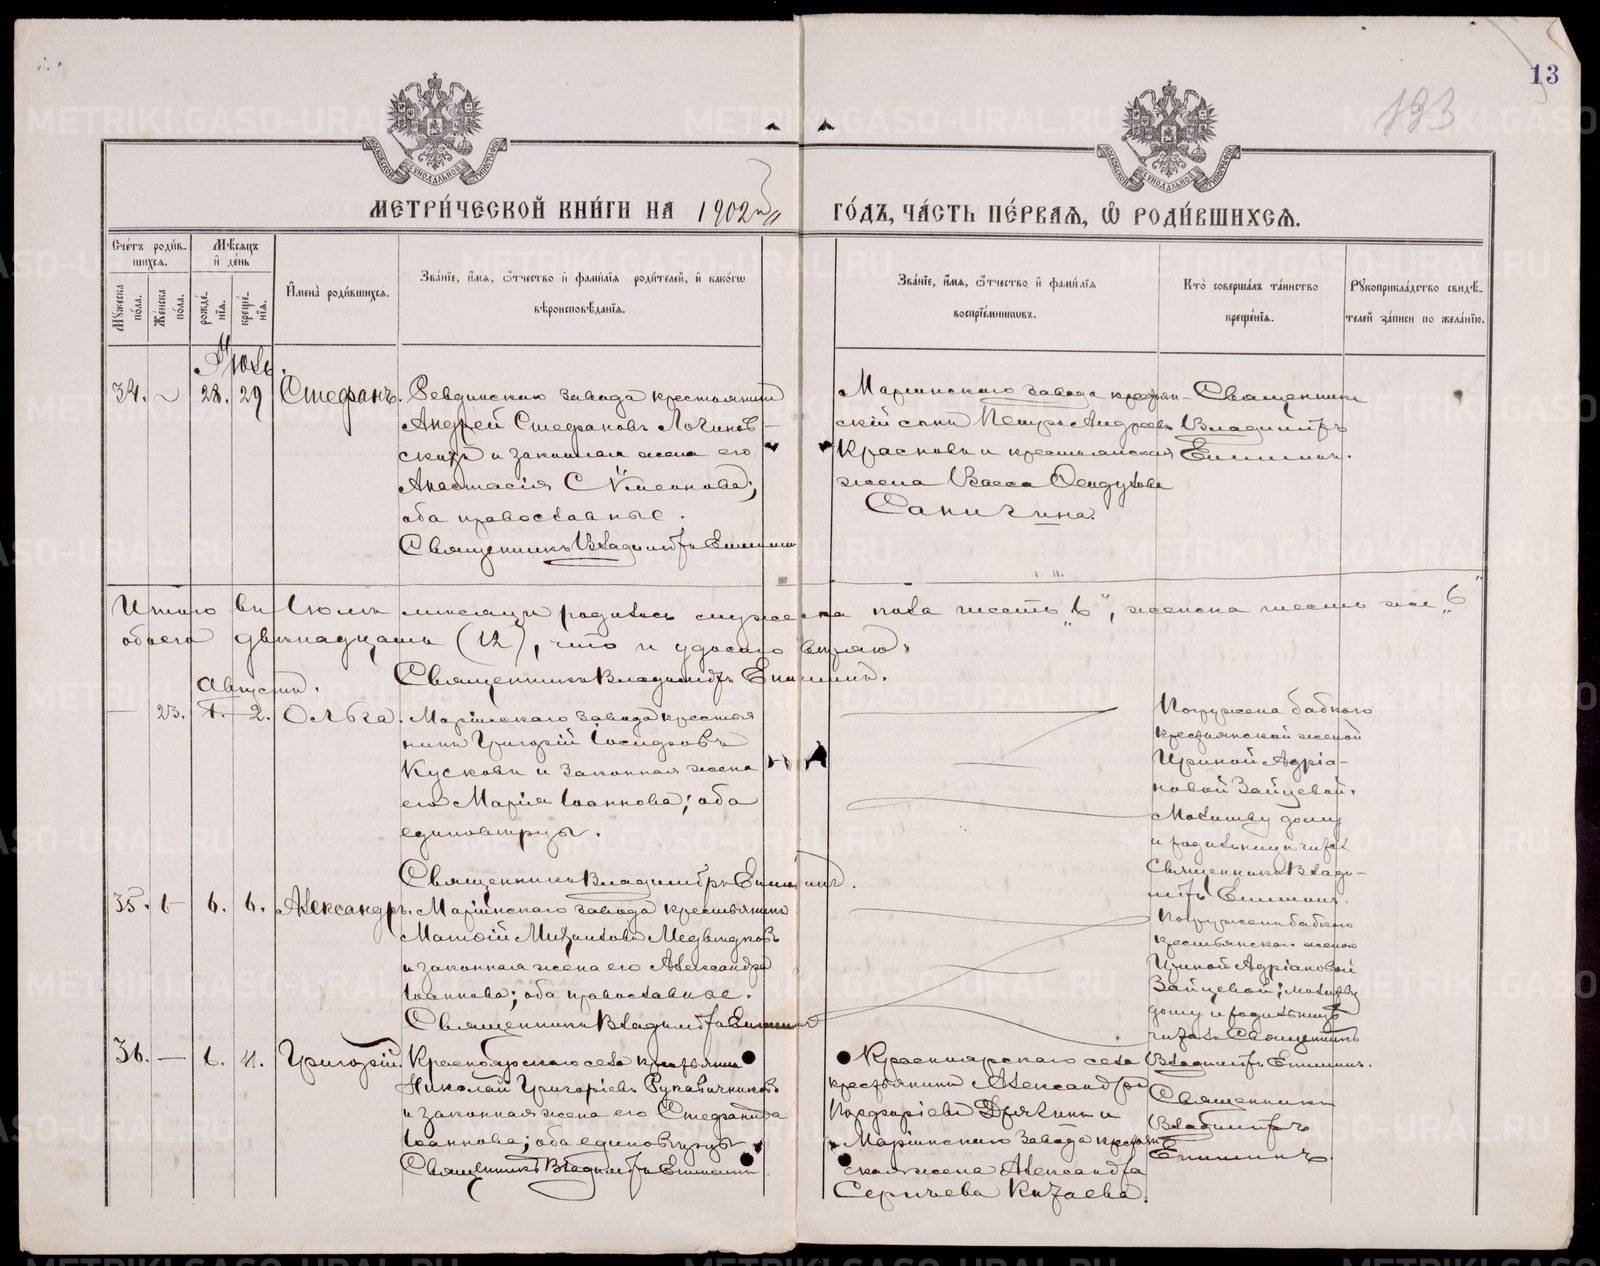 13
193
МЕТРИ́ЧЕСКОЙ КНИ́ГИ НА 1902й ГО́ДЪ, ЧА́СТЬ ПЕ́РВАЯ, Ѿ РОДИ́ВШИХСЯ.
Сче́тъ роди́в-
шихся.
Мѣ́сяцъ
и́ де́нь
Му́жеска
по́ла.
Же́нска
по́ла.
рожде́-
нія.
креще́-
нія.
И҆мена̀ роди́вшихся.
Зва́ніе, и҆́мя, ѻ҆́тчество и҆ фами́лія роди́телей, и҆ како́гѡ
вѣроисповѣ́данія.
Зва́ніе, и҆́мя, ѻ҆́тчество и҆ фами́лія
воспріе́мниковъ.
Кто̀ соверша́лъ та́инство
креще́нія.
Рукоприкла́дство свидѣ́-
телей за́писи по жела́нію.
Іюль.
34. 28. 29 Стефанъ.
Ревдинскаго завода крестьянинъ
Андрей Стефановъ Логинов-
скихъ и законная жена его
Анастасія Сѵмеонова;
оба православные.
Священникъ Владиміръ Епишинъ
Маріинскаго завода крестьян-
скій сынъ Петръ Андреевъ
Красновъ и крестьянская
жена Васса Ѳеодулова
Сапигина.
Священникъ
Владиміръ
Епишинъ.
Итого въ Іюлѣ мѣсяцѣ родилось мужеска пола шесть „6“, женска шесть же „6“
обоего двѣнадцать (12), что и удостовѣряю.
Священникъ Владиміръ Епишинъ.
Августъ.
— 23. 1. 2. Ольга.
Маріинскаго завода крестья
нинъ Григорій Іосифовъ
Кусковъ и законная жена
его Марія Іоаннова; оба
единовѣрцы.
Священникъ Владиміръ Епишинъ.
Погружена бабкою
крестьянской женой
Ириной Адріа-
новой Зайцевой.
Молитву дому
и родильницѣ читалъ
Священникъ Влади-
міръ Епишинъ.
35. — 6. 6. Александръ.
Маріинскаго завода крестьянинъ
Матѳій Михаиловъ Медвѣдковъ
и законная жена его Александра
Іоаннова; оба православные.
Священникъ Владиміръ Епишинъ
Погруженъ бабкою
крестьянской женою
Ириной Адріановой
Зайцевой; молитву
дому и родильницѣ
читалъ Священникъ
Владиміръ Епишинъ.
36. — 6. 11. Григорій.
Красноярскаго села крестьянинъ
Николай Григоріевъ Рукавичниковъ
и законная жена его Стефанида
Іоаннова; оба единовѣрцы
Священникъ Владиміръ Епишинъ.
Красноярскаго села
крестьянинъ Александръ
Порфиріевъ Дрягинъ и
Маріинскаго завода крестьян-
ская жена Александра
Сергіева Кизаева.
Священникъ
Владиміръ
Епишинъ.
METRIKI.GASO-URAL.RU